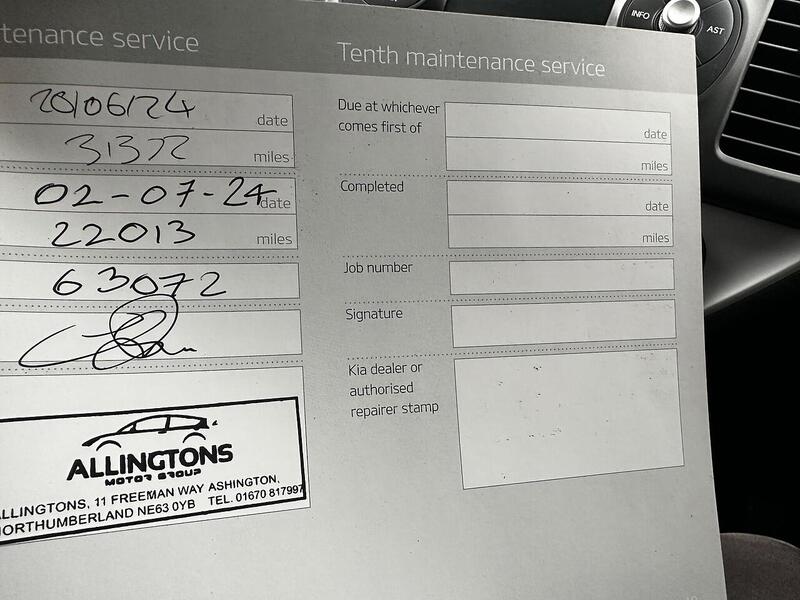 tenance service
28/06/24
date
31372
miles
02-07-24
date
22013
miles
63072
ALLINGTONS
MOTOR GROUP
ALLINGTONS, 11 FREEMAN WAY ASHINGTON,
NORTHUMBERLAND NE63 0YB TEL. 01670 817997
Tenth maintenance service
Due at whichever
comes first of
date
miles
Completed
date
miles
Job number
Signature
Kia dealer or
authorised
repairer stamp
INFO
AST